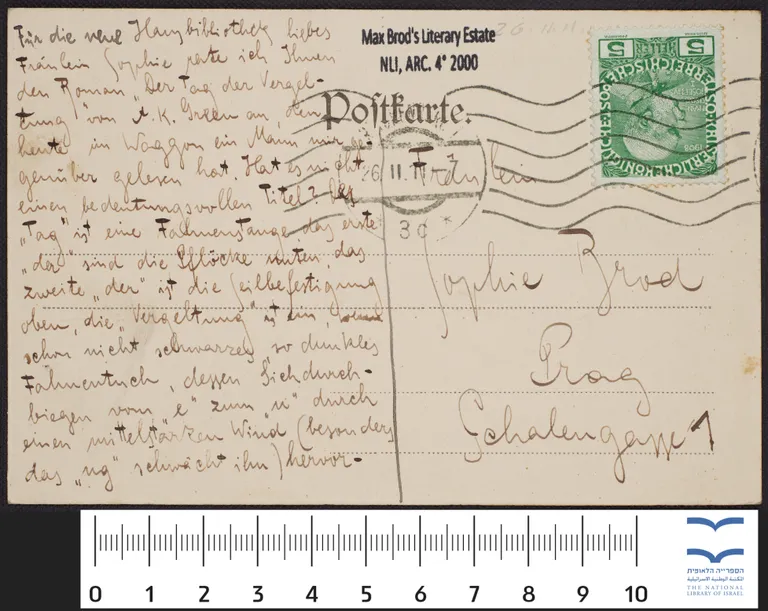 Für die neue Hausbibliothek liebes
Fräulein Sophie rate ich Ihnen
den Roman „Der Tag der Vergel-
tung" von A. K. Green an, den
heute im Waggon ein Mann mir ge-
genüber gelesen hat. Hat es nicht
einen bedeutungsvollen Titel? Der
„Tag" ist eine Fahnenstange, das erste
„der" sind die Pflöcke unten, das
zweite „der" ist die Seilbefestigung
oben, die „Vergeltung" ist ein, wenn
schon nicht schwarzes, so dunkles
Fahnentuch, dessen Sichdurch-
biegen vom „e" zum „u" durch
einen mittelstarken Wind (besonders
das „ng" schwächt ihn) hervor-
Max Brod's Literary Estate
NLI, ARC. 4° 2000
26.II.11
Postkarte.
26 II. 11
3c *
5 5
Fräulein
Sophie Brod
Prag
Schalengasse 1
0 1 2 3 4 5 6 7 8 9 10
הספרייה הלאומית
المكتبة الوطنية الاسرائيلية
THE NATIONAL
LIBRARY OF ISRAEL